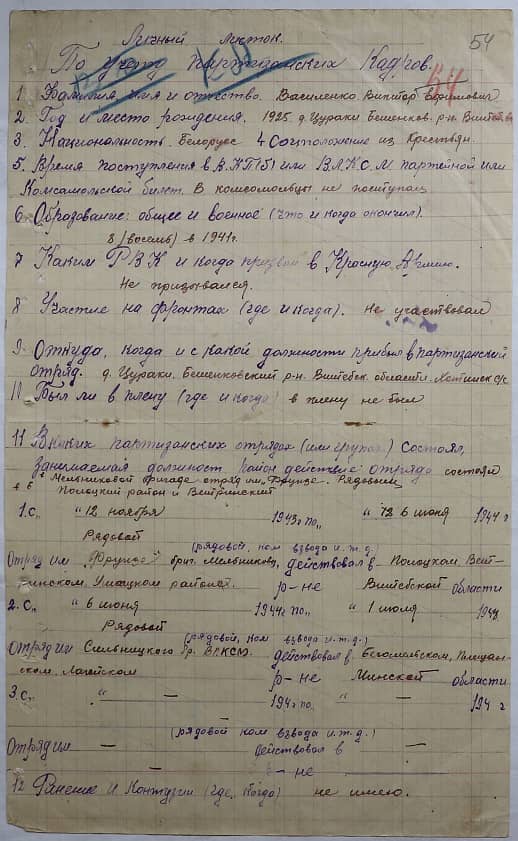 Личный листок.
54
По учету партизанских Кадров.
54
1 Фамилия имя и отчество. Василенко Виктор Ефимович
2 Год и место рождения. 1925. д. Цураки Бешенков. р-н Витебск
3 Национальность Белорус 4 Соцположение из Крестьян.
5. Время поступления в В.КП(б) или ВЛКС.М партейной или
Комсамольской билет. В комсомольцы не поступал
6 Образование: общее и военное (что и когда окончил).
8 (восемь) в 1941г.
7 Каким РВК и когда призван в Красную Армию.
Не призывался.
8 Участие на фронтах (где и когда). Не участвовал
9. Откуда, когда и с какой должности прибыл в партизанский
отряд. д. Цураки, Бешенковский р-н. Витебск. области. с/с
11 Был ли в плену (где и когда) в плену не был
11 В каких партизанских отрядах (или групах) состоял,
занимаемая должност. Район действие отряда состоял
в Мельниковой бригаде отряд им. "Фрунзе". Рядовым
Полоцкий район и Ветринский
1. С. " 12 ноября 1943г. по " 6 июня 1944 г
Рядовой
(рядовой, ком взвода и.т.д.)
Отряд им "Фрунзе" бриг. Мельникова, действовал в Полоцком, Вет-
ринском, Ушацком районах. р-не Витебской области
2. С. " 6 июня 1944г по " 1 июля 1944
Рядовой
(рядовой, ком взвода и.т.д.)
Отряд им бр. ВЛКСМ. действовал в Бегомельском, Плещан-
ском, Логойском р-не Минской области
3. С. " — 194 г по " — 194 г
(рядовой ком взвода и.т.д.)
Отряд им — действовал в —
в — не
12 Ранение и Контузии (где, когда) не имею.